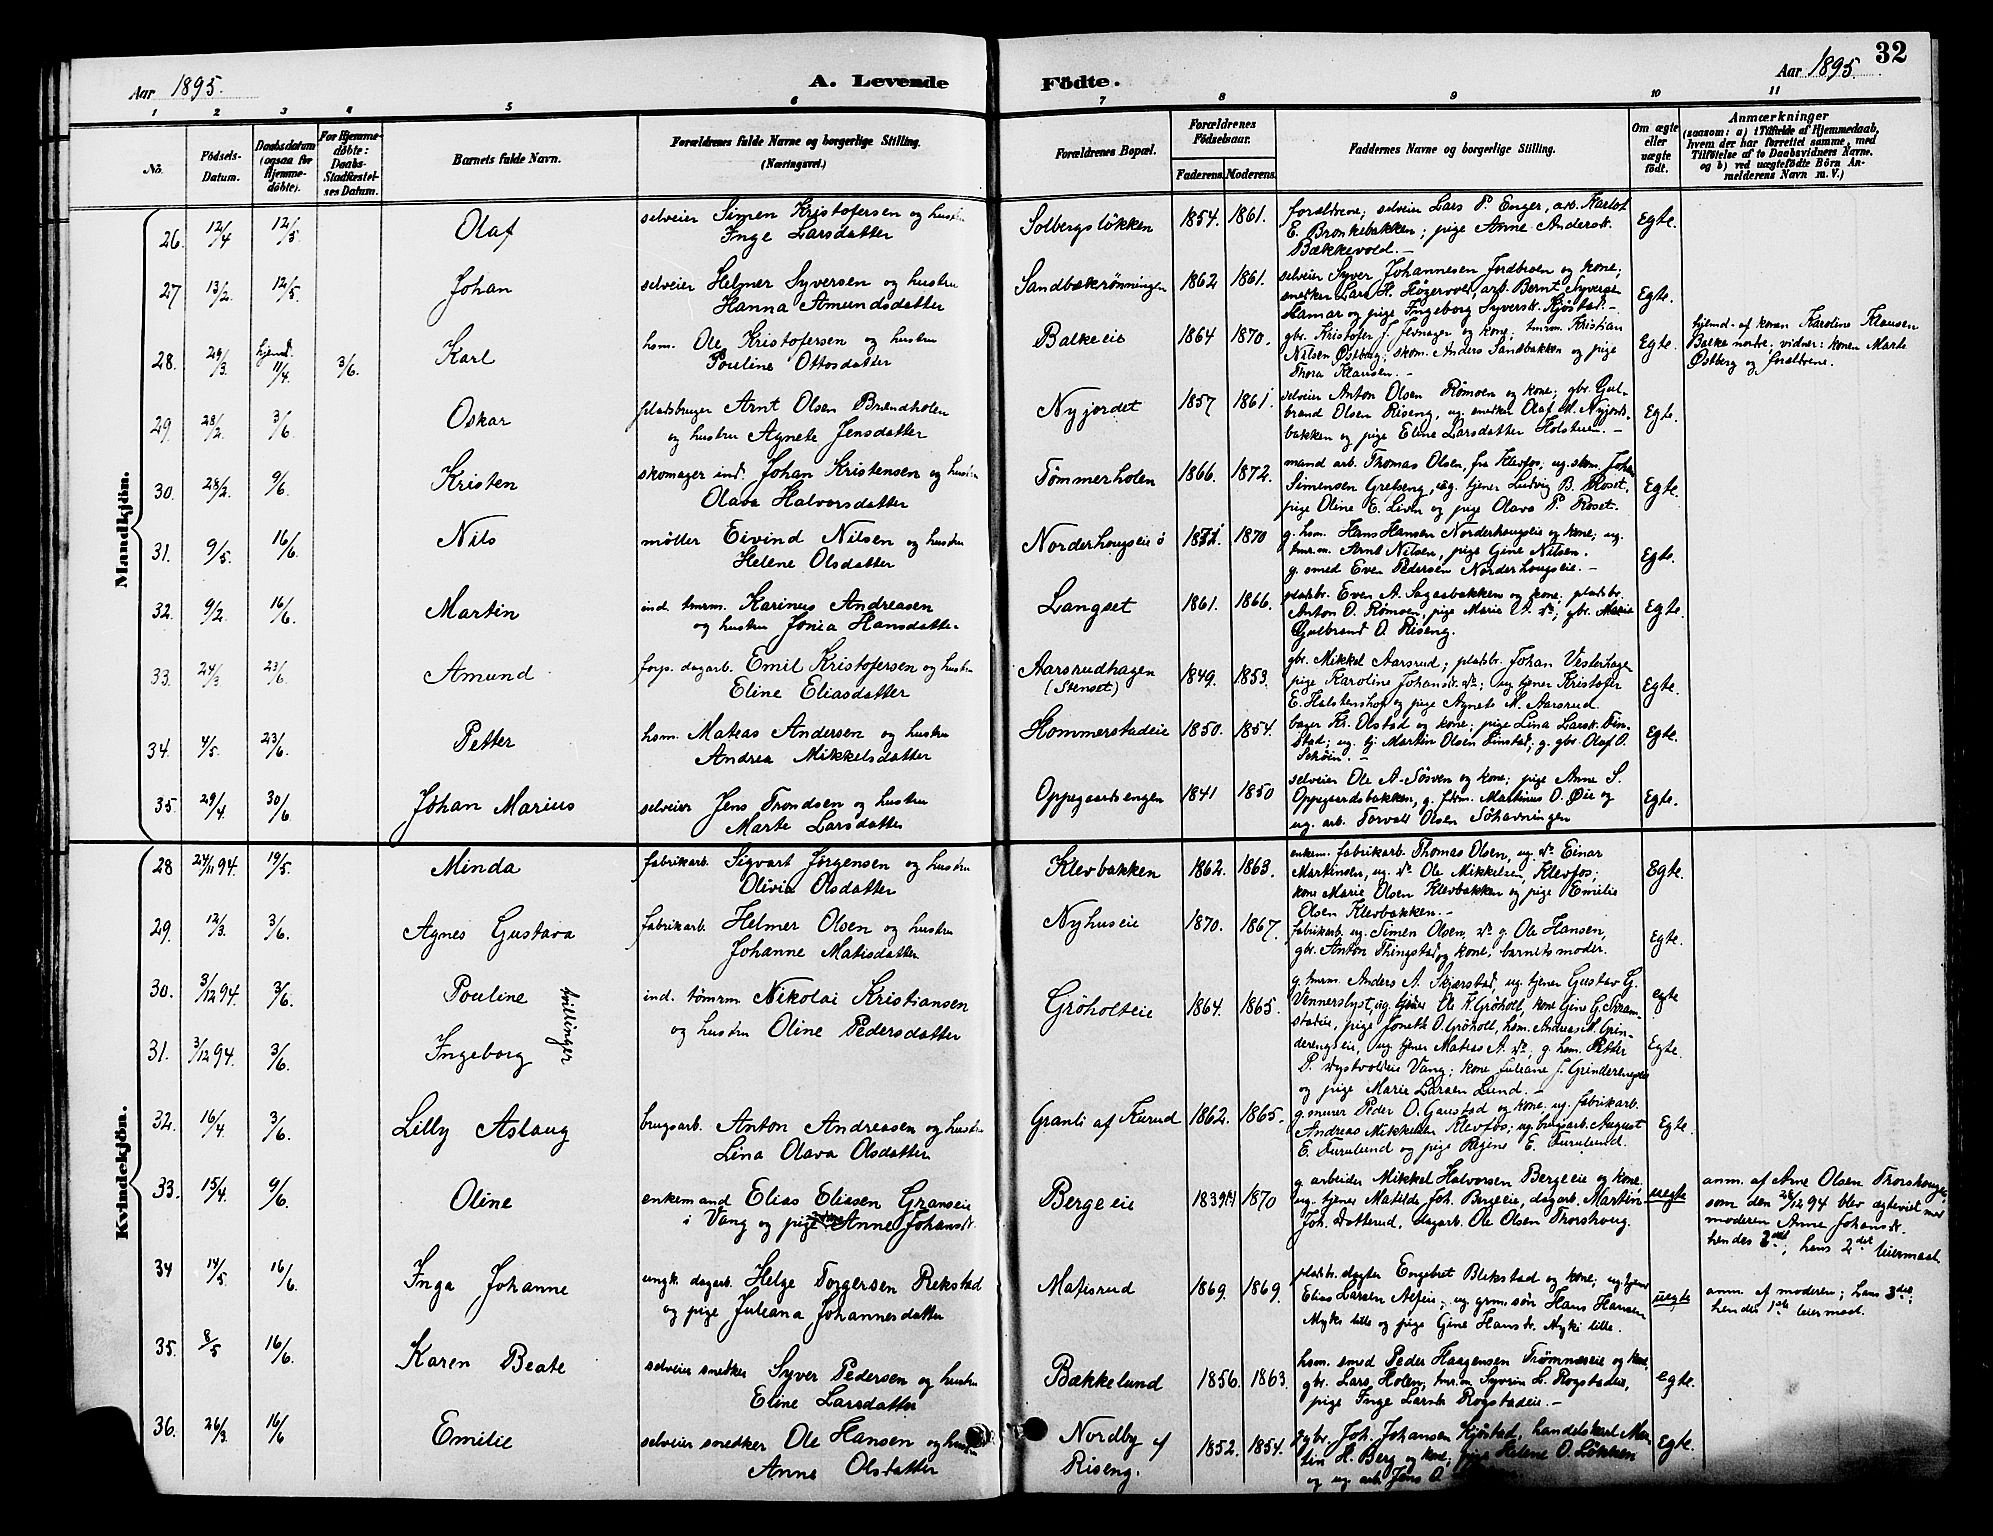 Aar 1895. A. Levende
Födte. Aar 1895. 32
1 2 3 4 5 6 7 8 9 10 11
No.
Födsels-
Datum.
Daabsdatum
(ogsaa for
Hjemme-
döbte).
For Hjemme-
döbte:
Daabs-
Stadfæstel-
ses Datum.
Barnets fulde Navn.
Forældrenes fulde Navne og borgerlige Stilling.
(Næringsvei.)
Forældrenes Bopæl.
Forældrenes
Födselsaar.
Faderens. Moderens.
Faddernes Navne og borgerlige Stilling.
Om ægte
eller
uægte
födt.
Anmærkninger
(saasom: a) i Tilfælde af Hjemmedaab,
hvem der har forrettet samme, med
Tilföielse af to Daabsvidners Navne,
og b) ved uægtefödte Börn An-
melderens Navn m. V.)
Mandkjön.
26. 12/4 12/5 Olaf selveier Simen Kristofersen og hustru
Inge Larsdatter
Solbergsløkken 1854. 1861. forældrene; selveier Lars P. Enger, arb. Karlot
E. Bronkebakken; pige Anne Andersd.
Bækkevold. —
Egte.
27 13/2 12/5 Johan selveier Helmer Syversen og hustru
Hanna Amundsdatter
Sandbækrønningen 1862 1861. selveier Syver Johannesen Jordbroen og kone;
snedker Lars H. arb. Bernt Syversen
Hamar og pige Ingeborg Syversd. Kjøstad. —
Egte.
28. 29/3 hjemd. 11/4 3/6. Karl hsm. Ole Kristofersen og hustru
Pouline Ottosdatter
Balkeeie 1864 1870. gbr. Kristofer J. Jednager og kone; tmrm. Kristian
Nilsen Østberg; skom. Anders Sandbakken og pige
Thora Klausen. —
Egte. hjemd. af konen Karoline Klausen
Balke nordre. vidner: konen Marte
Østberg og forældrene.
29. 28/2. 3/6. Oskar pladsbruger Arnt Olsen Brændholen
og hustru Agnete Jensdatter
Nyjordet 1857 1861. selveier Anton Olsen Rømoen og kone; gbr. Gul-
brand Olsen Riseng, ug. snedker Olaf M. Nyjords-
bakken og pige Eline Larsdatter Holstuen. —
Egte.
30. 28/2. 9/6. Kristen skomager ind. Johan Kristensen og hustru
Olava Halvorsdatter
Tømmerholen 1866. 1872. mand arb. Thomas Olsen, fra Klevfos; ug. skom. Johan
Simensen Gretseng, ug. tjener Ludvig B. Roset,
pige Oline E. Lien og pige Olava P. Roset.
Egte.
31. 9/5. 16/6. Nils møller Eivind Nilsen og hustru
Helene Olsdatter
Norderhougseie ø 1870 g. hsm. Hans Hansen Norderhougseie og kone; ug.
tmrm. Arnt Nilsen, pige Gine Nilsen.
g. smed Even Pedersen Norderhougseie. —
Egte.
32. 9/2. 16/6. Martin ind. tmrm. Karinus Andreasen
og hustru Jonea Hansdatter
Langset 1861. 1866. pladsbr. Even A. Sagaabakken og kone; pladsbr.
Anton O. Rømoen, pige Marie A. do; gbr.
Gulbrand O. Riseng.
Egte.
33. 24/3 23/6. Amund forp. dagarb. Emil Kristofersen og hustru
Eline Eliasdatter
Aarsrudhagen
(Stenset)
1849. 1853. gbr. Mikkel Aarsrud; pladsbr. Johan Vesterhagen
pige Karoline Johansd. do; ug tjener Kristofer
E. Halstenshof og pige Agnete M. Aarsrud.
Egte.
34. 4/5. 23/6. Petter hsm. Mateas Andersen og hustru
Andrea Mikkelsdatter
Hommerstadeie 1850. 1854. bager Kr. Olstad og kone; pige Lina Larsd. Fin-
stad; ug. tj. Martin Olsen Finstad; g. gbr. Olaf O.
Schøien. —
Egte.
35. 29/4. 30/6 Johan Marius selveier Jens Trondsen og hustru
Marte Larsdatter
Oppegaardsengen 1841 1850 selveier Ole A. Tøsven og kone; pige Anne S.
Oppegaardsbakken, g. fdrm. Martinus O. Øie og
ug. arb. Torvall Olsen Tøhavningen
Egte.
Kvindekjön.
28 24/11 94. 19/5. Minda fabrikarb. Sigvart Jørgensen og hustru
Olivia Olsdatter
Klevbakken 1862. 1863. enkem. fabrikarb. Thomas Olsen, ug. do Einar
Martinsen, ug. do Ole Mikkelsen, Klevfos;
kone Marie Olsen Klevbakken og pige Emilie
Olsen Klevbakken. —
Egte.
29. 12/3. 3/6. Agnes Gustava fabrikarb. Helmer Olsen og hustru
Johanne Matisdatter
Nyhuseie 1870. 1867. fabrikarb. ug. Simen Olsen, do g. Ole Hansen,
gbr. Anton Thingstad og kone, barnets moder.
Egte.
30. 3/12 94. 3/6. Pouline tvillinger ind. tømrm Nikolai Kristiansen
og hustru Oline Pedersdatter
Grøholteie 1864. 1865. g. tmrm. Anders A. Skjærstad, ug. tjener Gustav G.
Vennerslyst, ug. tjener Ole K. Grøholt, kone Gine G. Fram-
stadeie, pige Jonette O. Grøholt, hsm. Andreas M. Grin-
Egte
31. 3/12 94. 3/6. Ingeborg
derengseie, ug. tjener Mateas A. do; g. hsm. Petter
P. Dystvoldeie Vang; kone Juliane J. Grinderengseie
og pige Marie Larsen Lund. —
Egte.
32. 16/4. 3/6. Lilly Aslaug brugsarb. Anton Andreasen og hustru
Lina Olava Olsdatter
Granli af Kurud 1862. 1865. g. murer Peder O. Gaustad og kone. ug. fabrikarb.
Andreas Mikkelsen Klevfos; ug. brugsarb. August
E. Furulund og pige Regine E. Furulund.
Egte.
33. 15/4. 9/6. Oline enkemand Elias Eliasen Granseie
i Vang og pige Anne Johansd.
Bergeeie 1870 g. arbeider Mikkel Halvorsen Bergeeie og kone.
ug. tjener Matilde Joh. Bergeeie, dagarb. Martin
Joh. Dotterud, dagarb. Ole Olsen Thorshoug.
uegte anm. af Arne Olsen Thorshoug
som den 28/12 94 blev ægteviet med
moderen Anne Johansd.
hendes 3det, hans 2det leiermaal.
34 14/5 16/6. Inga Johanne ungk. dagarb. Helge Torgersen Rekstad
og pige Juleana Johannesdatter
Matisrud 1869. 1869. pladsbr. Engebret Blikstad og kone; ug. tjener
Elias Larsen Alfeie; ug grmsøn Hans Hansen
Myke lille og pige Gine Hansd. Myke lille.
uegte anm. af moderen; hans 3die;
hendes 1ste leiermaal.
35. 8/5 16/6. Karen Beate selveier snedker Syver Pedersen og hustru
Eline Larsdatter
Bækkelund 1856. 1863. hsm. smed Peder Haagensen Trømnæseie og kone,
gbr. Lars Holen, tmrm Syvrin L. Rogstadeie,
pige Inge Larsd. Rogstadeie. —
Egte.
36. 26/3 16/6 Emilie selveier snedker Ole Hansen og hustru
Anne Olsdatter
Nordby af
Riseng.
1852. 1854. gbr. Joh. Johansen Kjøstad, handelskarl Mar-
tin H. Berg og kone; pige Helene O. Løkken
og ug. arb. Jens O.
Egte.